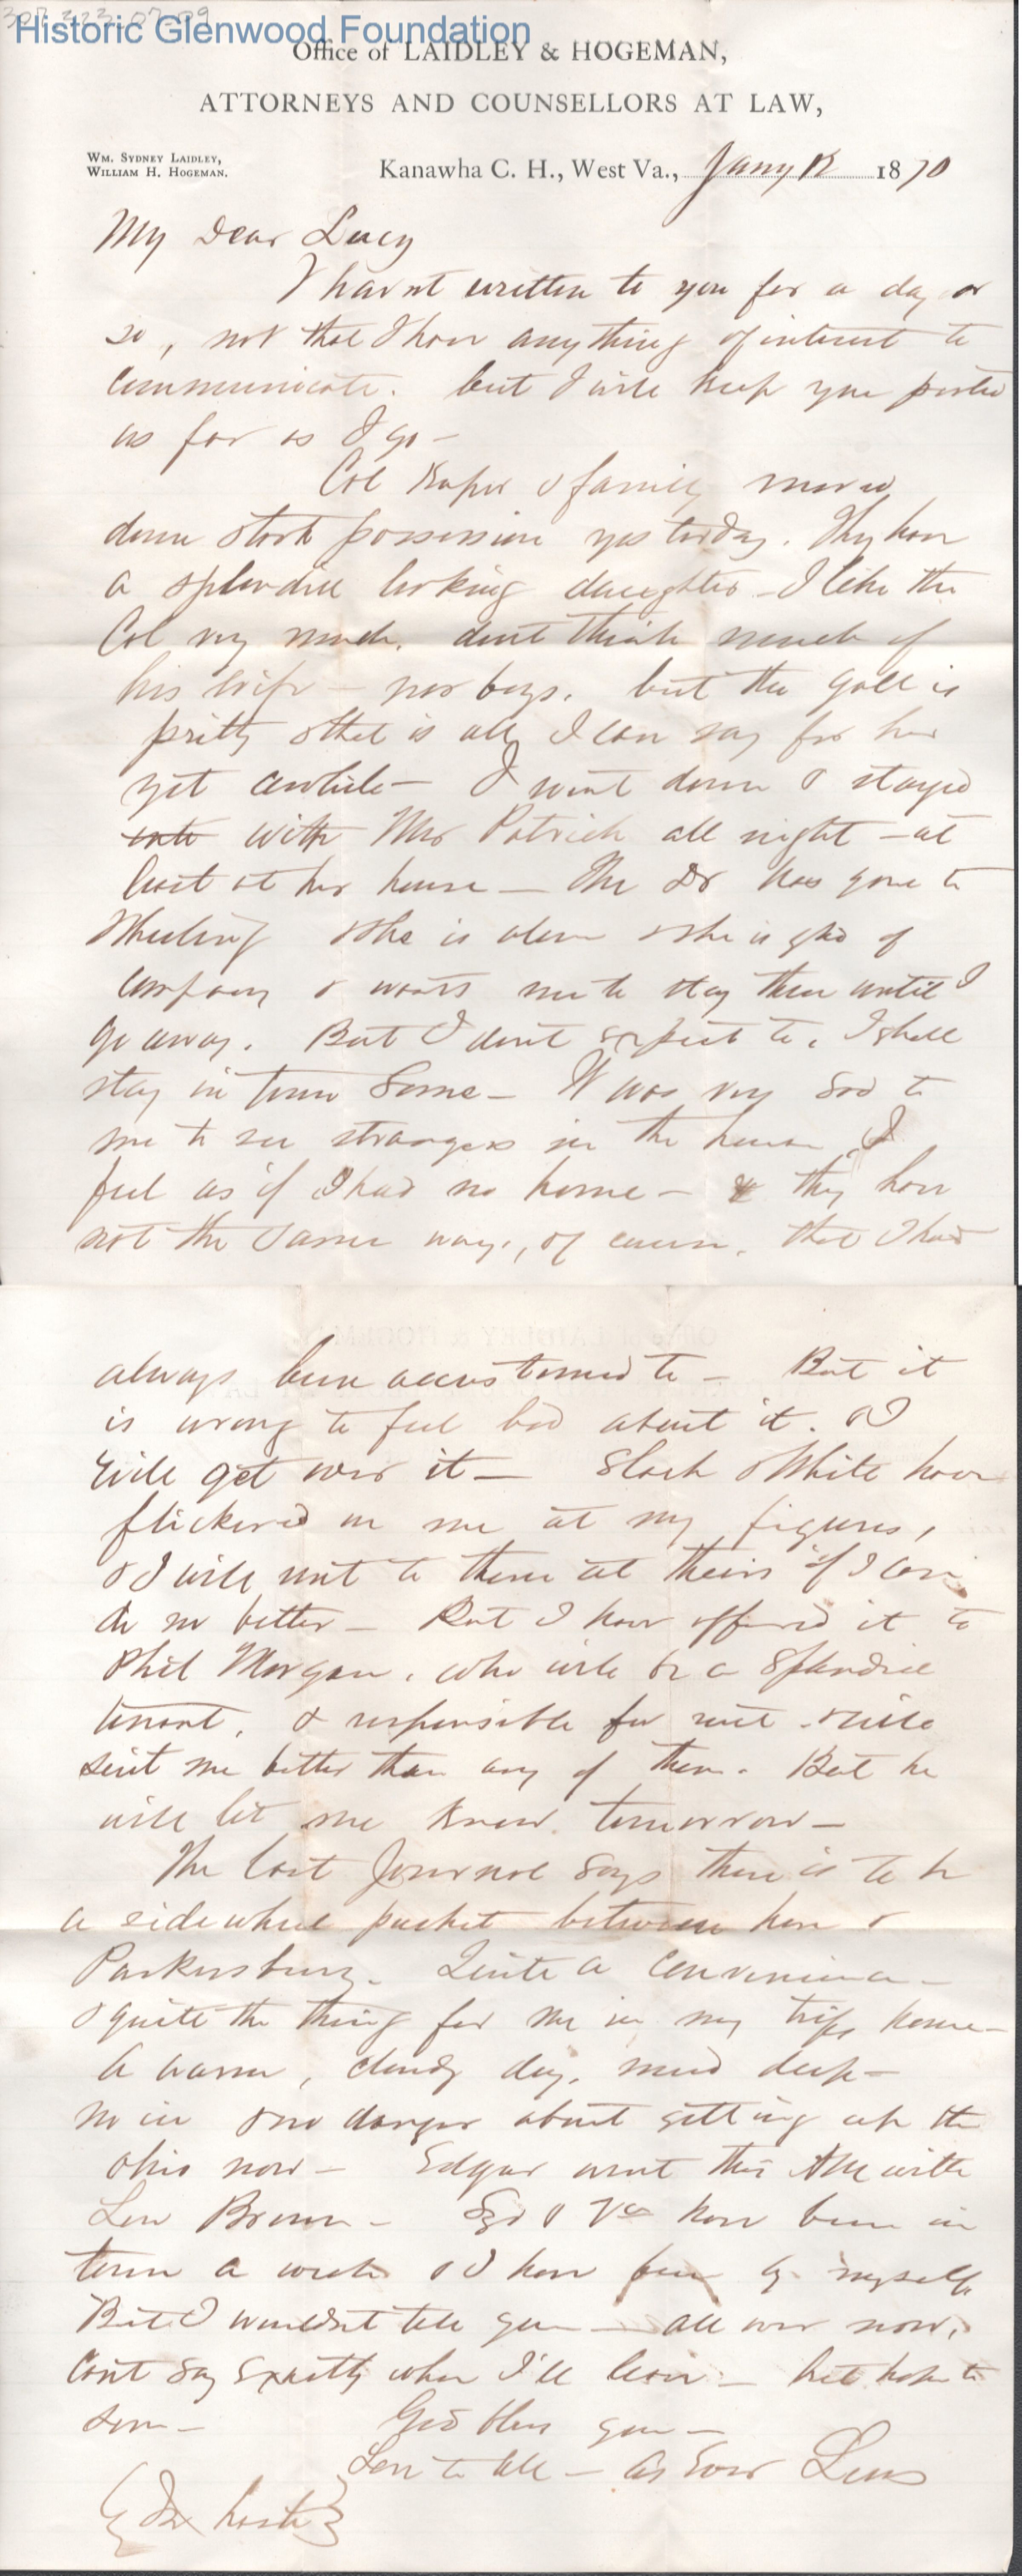 307.323.07.09
Historic Glenwood Foundation
Office of LAIDLEY & HOGEMAN,
ATTORNEYS AND COUNSELLORS AT LAW,
WM. SYDNEY LAIDLEY,
WILLIAM H. HOGEMAN.
Kanawha C. H., West Va., Jany 12 1870
My Dear Lucy
I havnt written to you for a day or
so, not that I have anything of interest to
communicate. but I will keep you posted
as far as I go -
Col & family moved
down & took possession yesterday. They have
a splendid looking daughter - I like the
Col very much. dont think much of
his wife - nor boys. but the gall is
pritty & that is all I can say for her
yet awhile - I went down & stayed
with Mrs Patrick all night - at
least at her house - The Dr has gone to
Wheeling & she is alone & she is glad of
company & wants me to stay there until I
go away. But I dont expect to. I shall
stay in town some - It was very sad to
me to see strangers in the house. I
feel as if I had no home - & they have
not the same ways, of course, that I had
always been accustomed to - But it
is wrong to feel bad about it. & I
will get over it - Slack & White have
flickered on me at my figures,
& I will rent to them at theirs if I can
do no better - But I have offered it to
Phil Morgan, who will be a splendid
tenant, & responsible for rent & will
suit me better than any of them. But he
will let me know tomorrow -
The last Journal says there is to be
a sidewheel packet between here &
Parkersburg. Quite a convenience -
& quite the thing for me in my trips home -
A warm, cloudy day, mud deep -
no ice & no danger about getting up the
Ohio now - Edgar went this AM with
Lew Brown - & Va have been in
town a week & I have been by myself
But I wouldnt tell you - all over now.
Cant say exactly when I'll leave - but hope to
soon - God bless you -
Love to all - As Ever Lews
{ In haste }